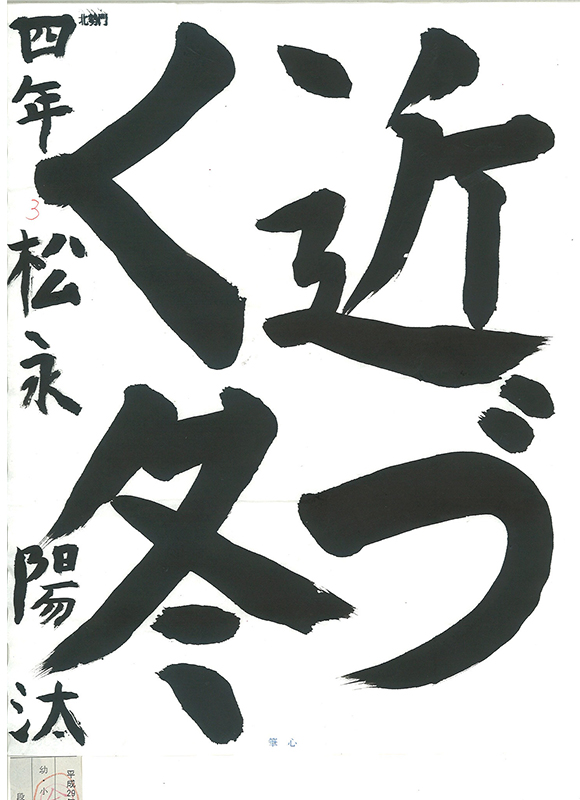 近づ
く冬
四年 松永 陽汰
北勢門
3
筆心
平成29
幼・小
段